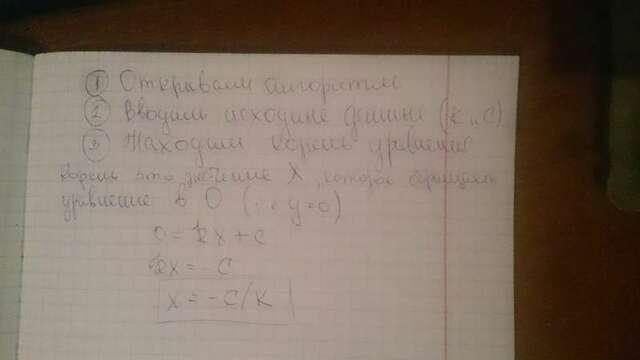 ① Открываем алгоритм
② Вводим исходные данные (К и С)
③ Находим корень уравнения
корень это значение X, которое обращает
уравнение в 0 (y=0)
0 = kX + C
kX = -C
X = -C/K